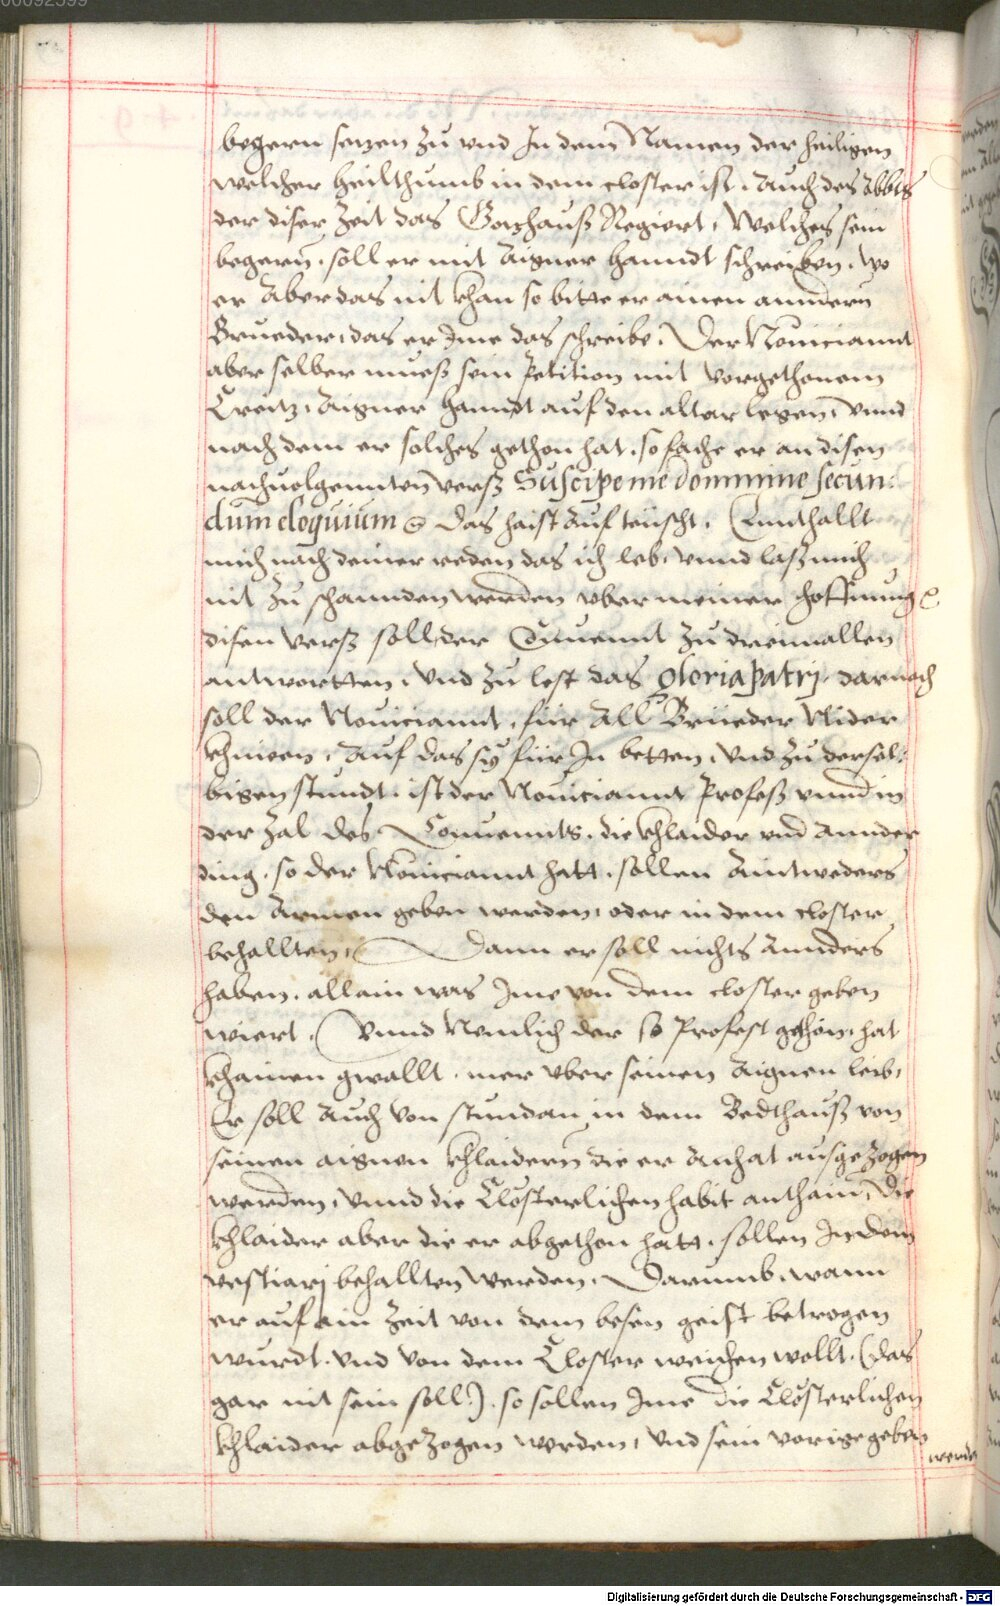 00092599
begern setzen zu vnd In dem Namen der heiligen
welcher heilthumb in dem closter ist. Auch des Abbts
der diser Zeit das Gotzhauß Regiert, Welches sein
begern. soll er mit Aigner hanndt schreiben. Wo
er Aber das nit khan so bitte er ainen anndern
Brueder, das er Ime das schreibe. Der Nouiciannt
aber selber mueß sein Petition mit vorgethonem
Creitz, Aigner hanndt auf den altar legen, vnnd
nach dem er solches gethon hat. so fache er an disen
nachuolgennten verß Suscipe me dommine secun:
dum eloquium das haist Auf teüscht. Ennthallt
mich nach deiner reden das ich leb, vnnd laß mich
nit zu schannden werden vber meiner hoffnung
disen verß soll der Conuennt zu dreimallen
antwortten, Vnd zu lest das gloria patrj. darnach
soll der Nouiciannt, für All Brüeder Nider
khnieen, Auf das sy für In betten, Vnd zu dersel:
bigen stundt. ist der Nouiciannt Profeß vnnd in
der Zal des Conuennts. die khlaider vnd annder
ding. so der Nouiciannt hatt. sollen Aintweders
den Armen geben werden, oder in dem closter
behallten, Dann er soll nichts Annders
haben. allain was Ime von dem closter geben
wiert. Vnnd Nemlich der so Profest gethon, hat
khainen gwallt. mer vber seinen Aignen leib,
Er soll Auch Von stundan in dem Bedthauß von
seinen aignen khlaidern die er Anhat ausgezogen
werden, Vnnd die Clösterlichen habit anthain, die
khlaider aber die er abgethon hatt. sollen In dem
vestiarj behallten werden. Darumb. wann
er auf ein Zeit von dem besen geist betrogen
wurdt. vnd Von dem Closter weichen wollt. (das
gar nit sein soll.) so sollen Ime die Clösterlichen
khlaider abgezogen werden, Vnd sein vorige geben
werde
Digitalisierung gefördert durch die Deutsche Forschungsgemeinschaft - DFG